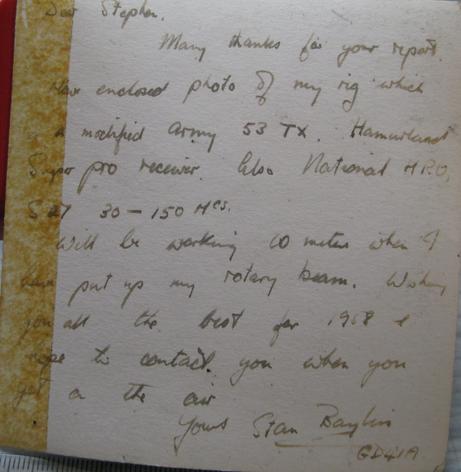 Dear Stephen.
Many thanks for your report.
Have enclosed photo of my rig which
is a modified Army 53 TX. Hammarlund
Super pro receiver. Also National HRO,
S27 30 - 150 Mcs.
Will be working 10 meters when I
have put up my rotary beam. Wishing
you all the best for 1968 &
hope to contact you when you
get on the air
Yours Stan
GD4IA